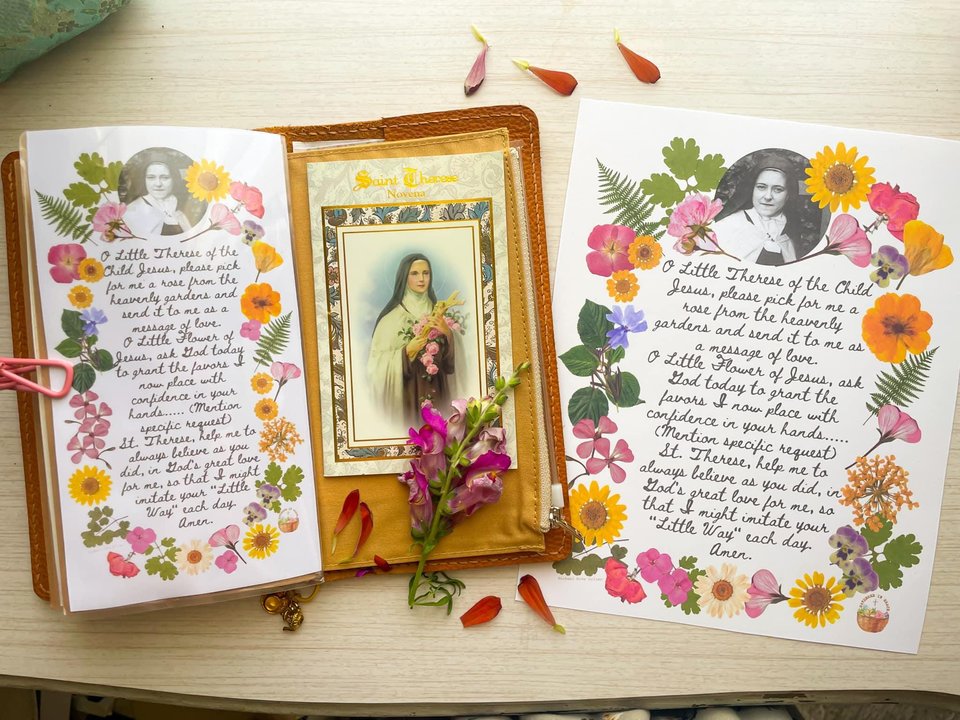 O Little Therese of the
Child Jesus, please pick
for me a rose from the
heavenly gardens and
send it to me as a
message of love.
O Little Flower of
Jesus, ask God today
to grant the favors I
now place with
confidence in your
hands..... (Mention
specific request)
St. Therese, help me to
always believe as you
did, in God's great love
for me, so that I might
imitate your "Little
Way" each day.
Amen.
Saint Therese
Novena
O Little Therese of the Child
Jesus, please pick for me a
rose from the heavenly
gardens and send it to me as
a message of love.
O Little Flower of Jesus, ask
God today to grant the
favors I now place with
confidence in your hands.....
(Mention specific request)
St. Therese, help me to
always believe as you did, in
God's great love for me, so
that I might imitate your
"Little Way" each day.
Amen.